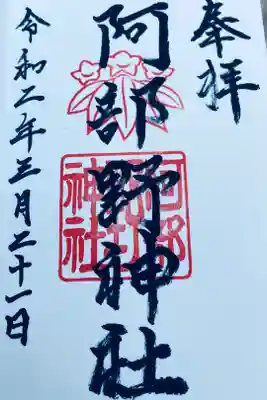 奉拝
阿部野神社
阿部野神社
令和二年三月二十一日